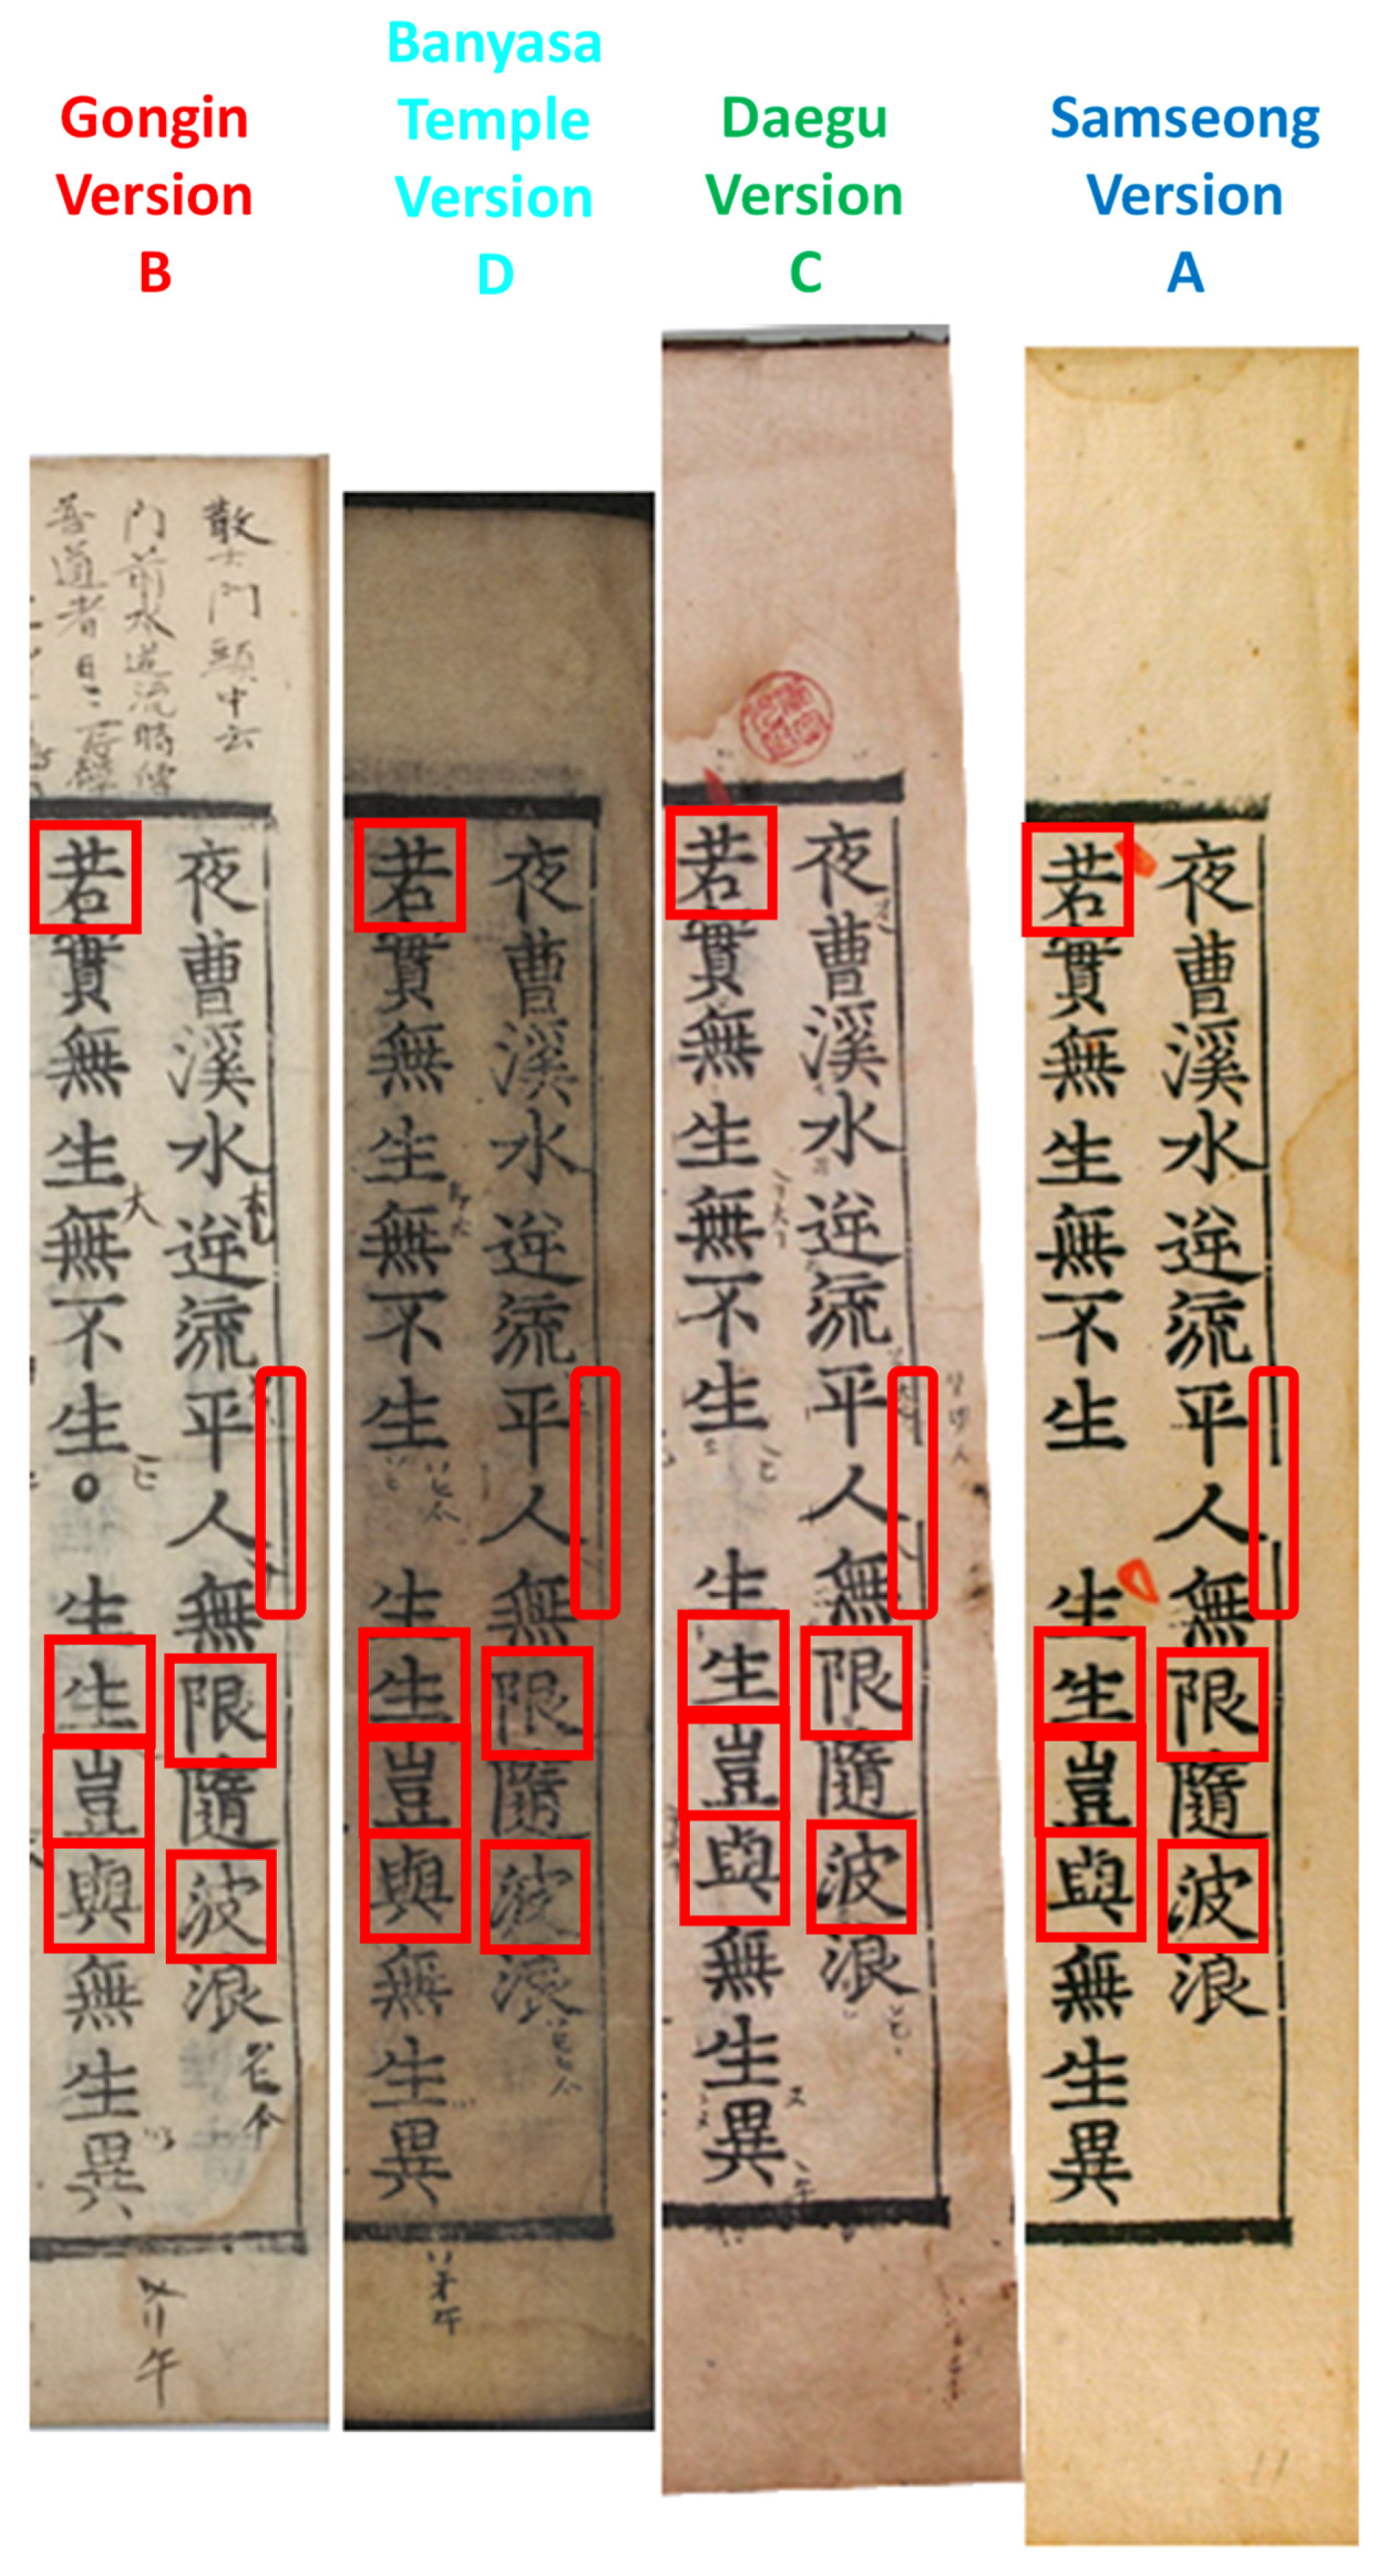 Gongin
Version
B
Banyasa
Temple
Version
D
Daegu
Version
C
Samseong
Version
A
中云
門前水逆流時
善道者
夜曹溪水逆流平人無限隨波浪
若實無生無不生。生生豈與無生異
夜曹溪水逆流平人無限隨波浪
若實無生無不生 生生豈與無生異
夜曹溪水逆流平人無限隨波浪
若實無生無不生 生生豈與無生異
夜曹溪水逆流平人無限隨波浪
若實無生無不生 生生豈與無生異